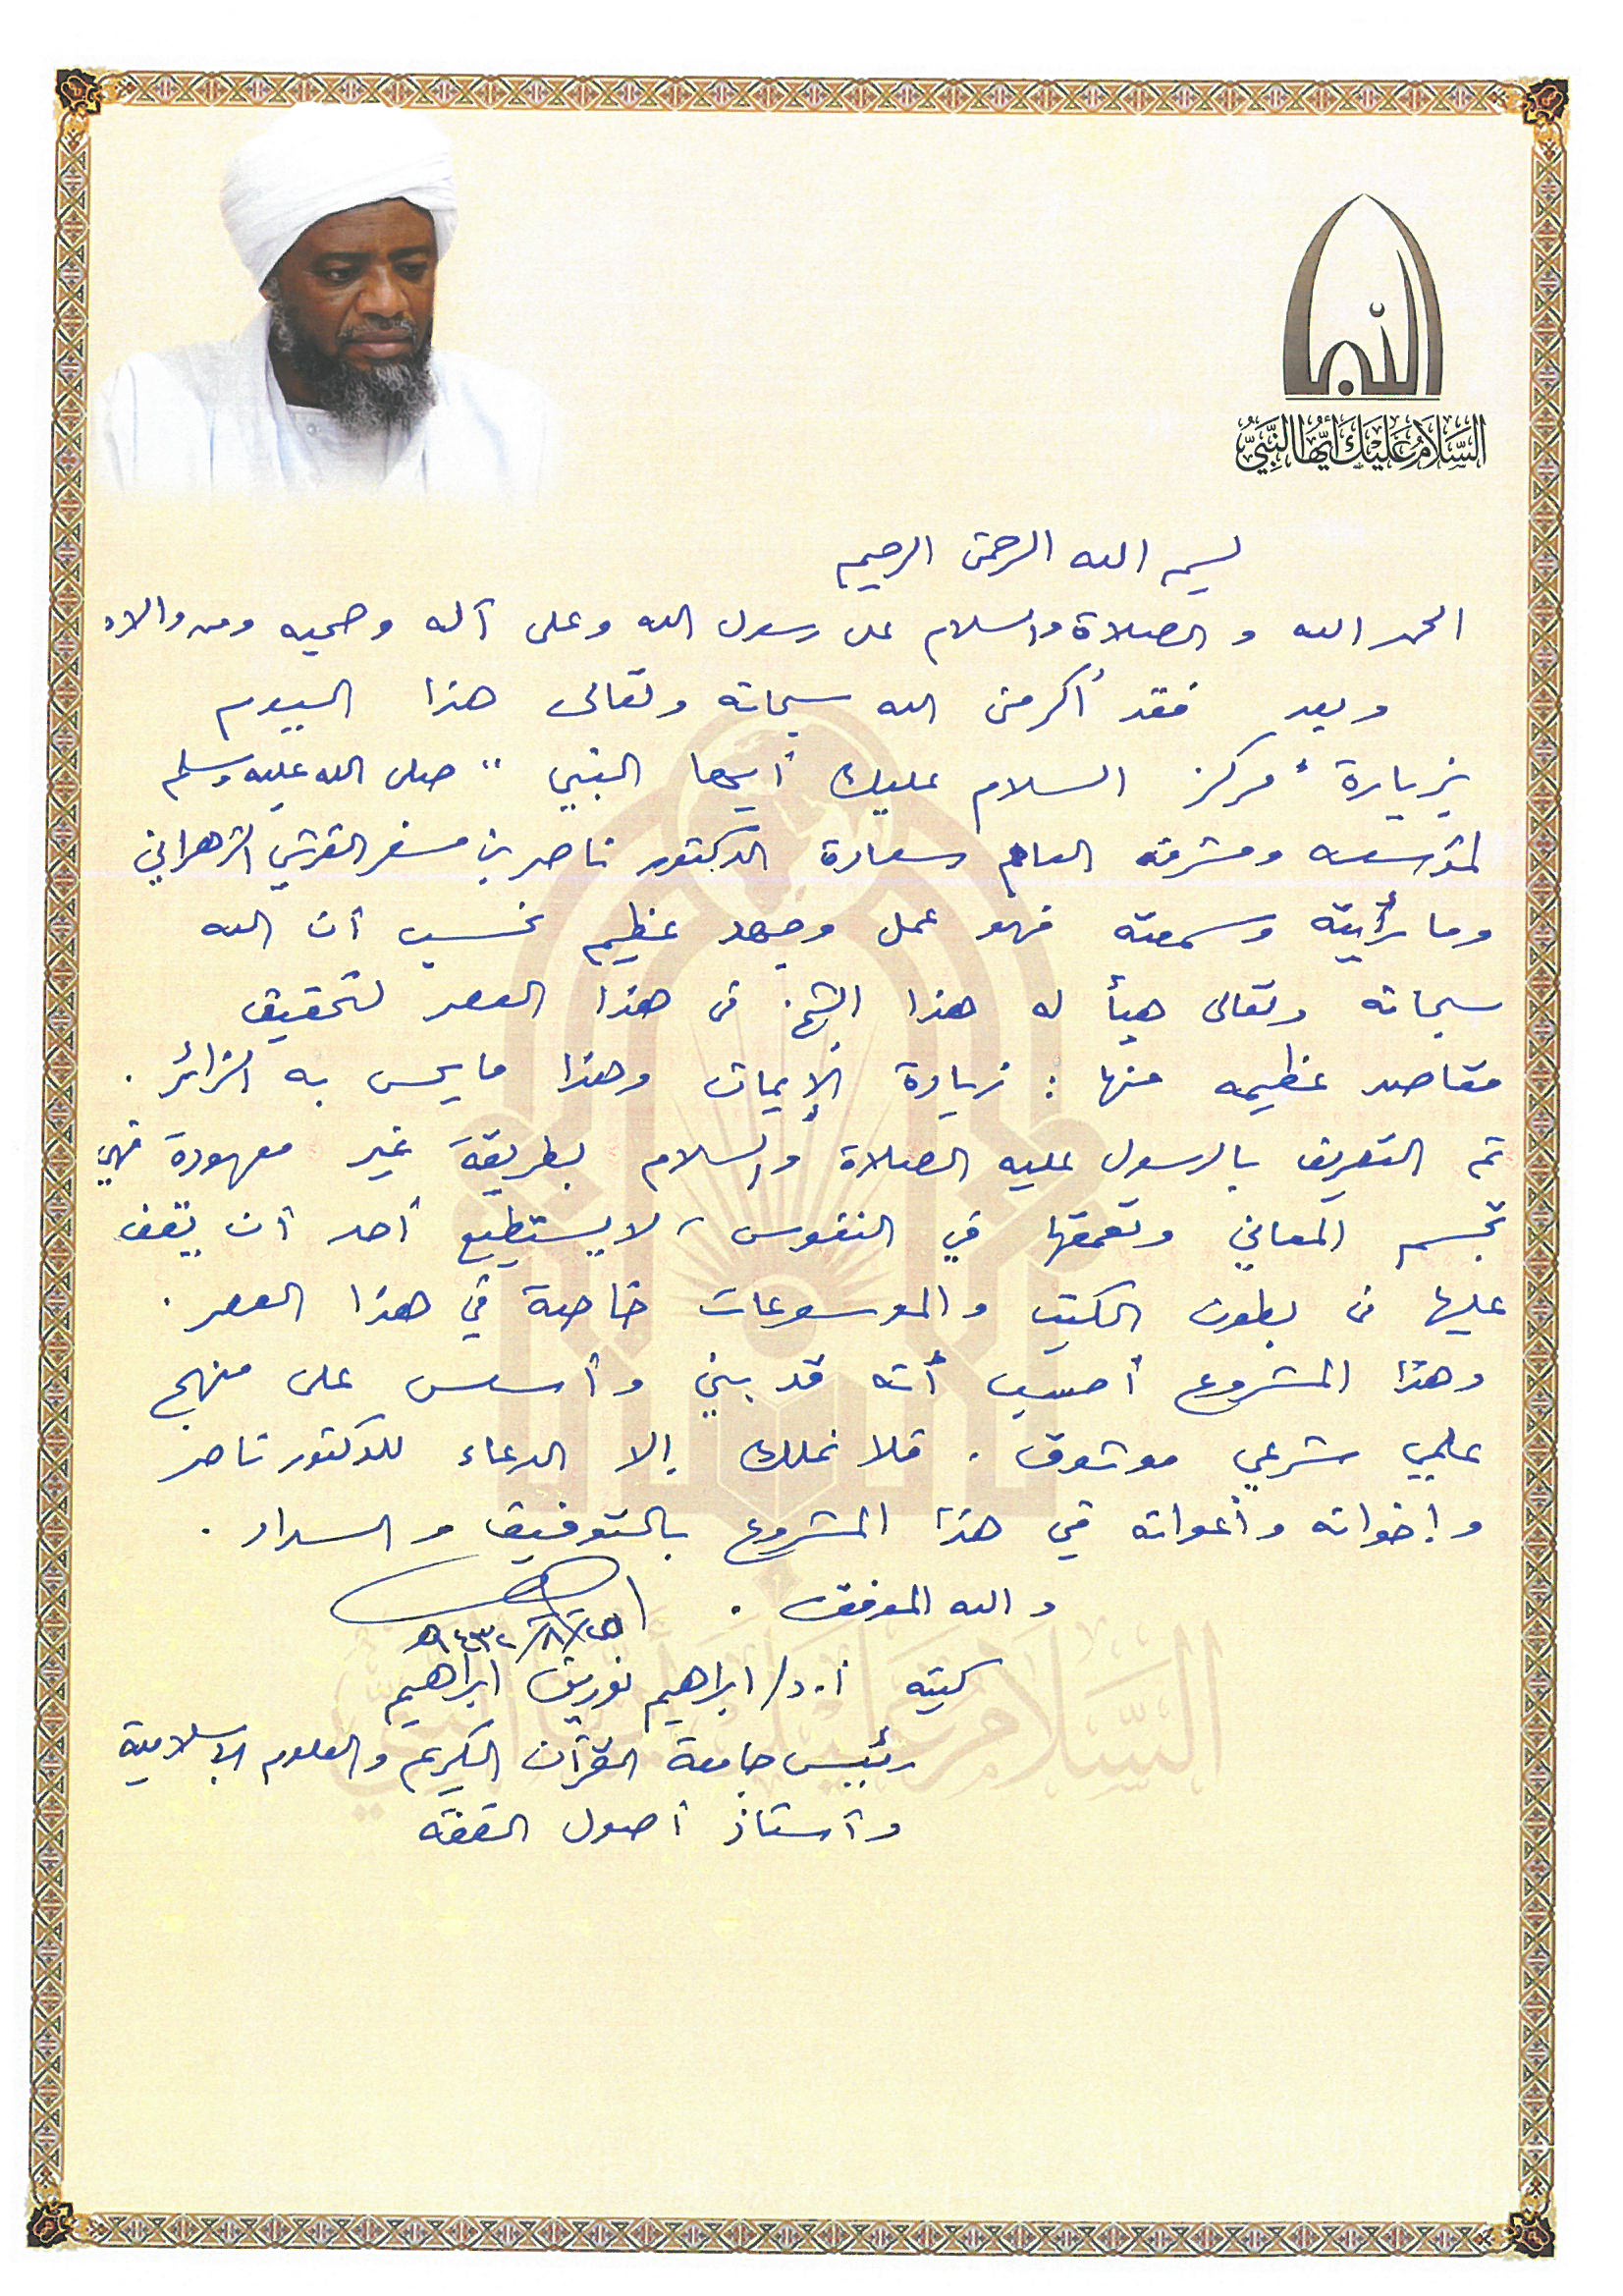 السلام عليك أيها النبي
بسم الله الرحمن الرحيم
الحمد الله والصلاة والسلام على رسول الله وعلى آله وصحبه ومن والاه
وبعد فقد أكرمني الله سبحانه وتعالى هذا اليوم
بزيارة "مركز السلام عليك أيها النبي" صلى الله عليه وسلم
لمؤسسه ومشرفه العام سعادة الدكتور ناصر بن مسفر القرشي الزهراني
وما رأيته وسمعته فهو عمل وجهد عظيم نحسب أن الله
سبحانه وتعالى هيأ له هذا الشيخ في هذا العصر لتحقيق
مقاصد عظيمه منها : زيادة الإيمان وهذا ما يحس به الزائر .
ثم التعريف بالرسول عليه الصلاة والسلام بطريقة غير معهودة فهي
تجسم المعاني وتعمقها في النفوس، لا يستطيع أحد أن يقف
عليها في بطون الكتب والموسوعات خاصة في هذا العصر .
وهذا المشروع أحسب أنه قد بني وأسس على منهج
علمي شرعي موثوق . فلا نملك إلا الدعاء للدكتور ناصر
وإخوانه وأعوانه في هذا المشروع بالتوفيق والسداد .
والله الموفق .
كتبه أ.د/ ابراهيم نورين ابراهيم
رئيس جامعة القرآن الكريم والعلوم الإسلامية
وأستاذ أصول الفقه